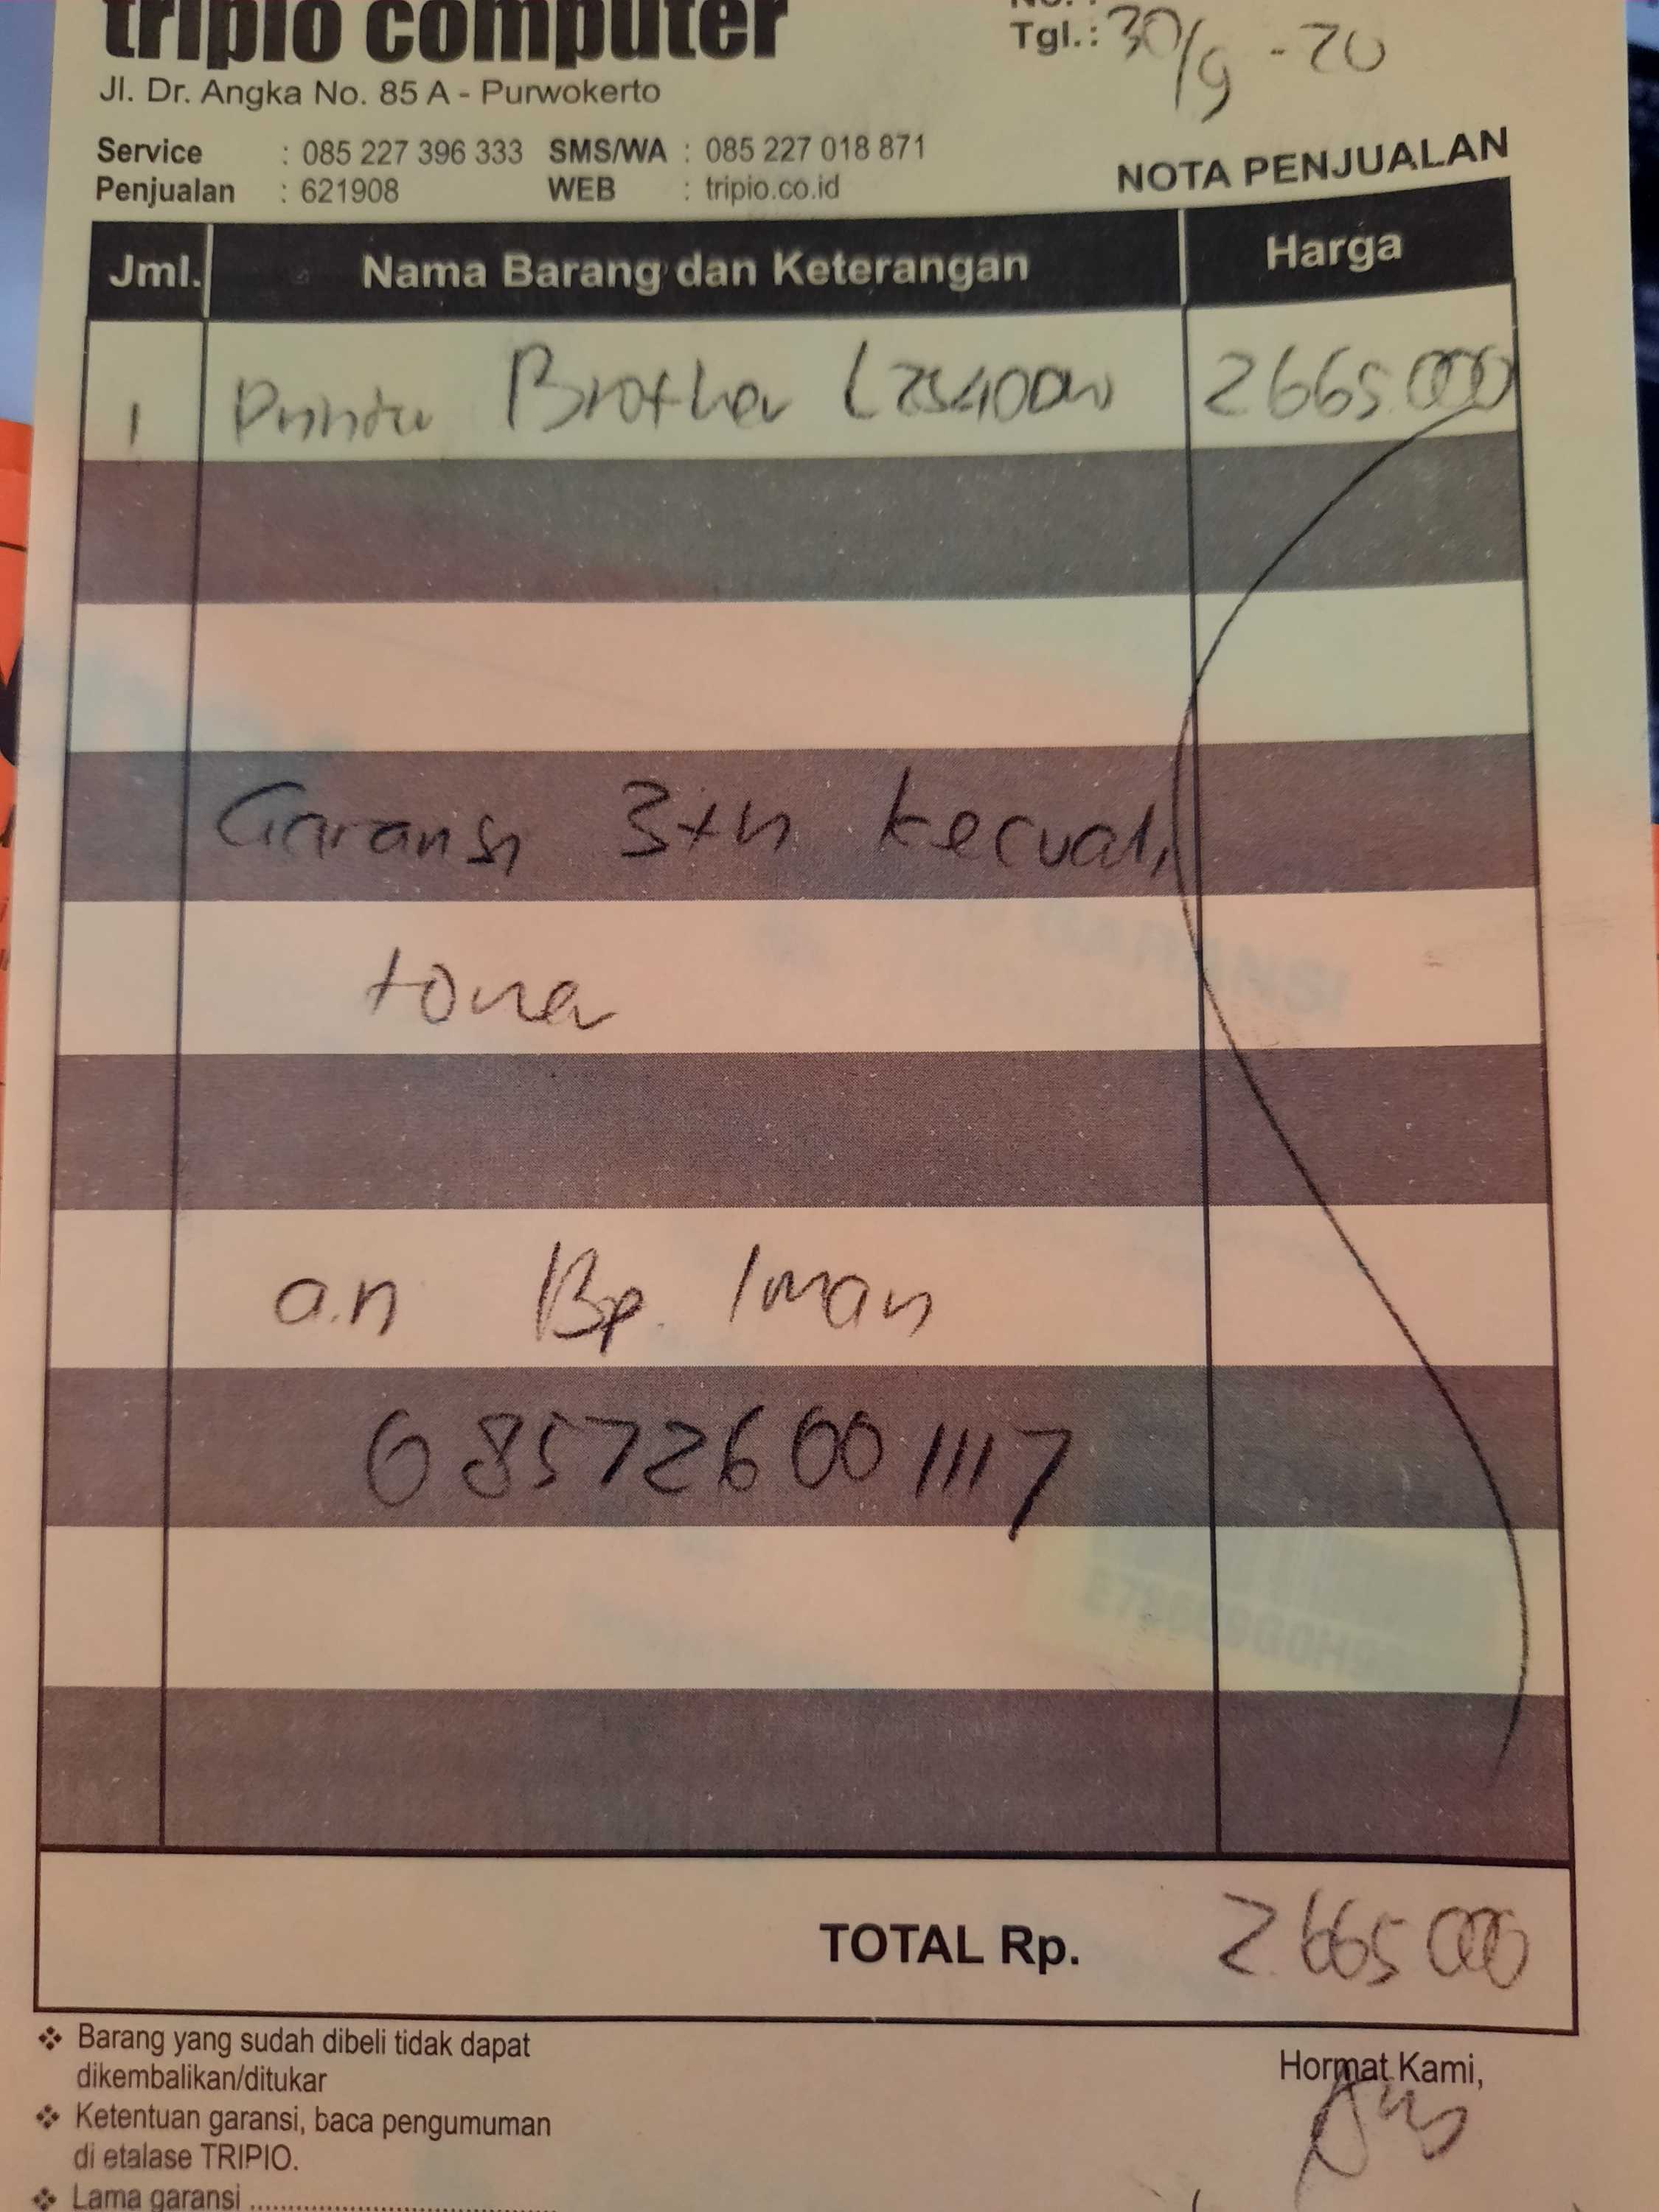 tripio computer
No. :
Tgl.: 30/9 - 20
Jl. Dr. Angka No. 85 A - Purwokerto
Service : 085 227 396 333 SMS/WA : 085 227 018 871
Penjualan : 621908 WEB : tripio.co.id
NOTA PENJUALAN
Jml. Nama Barang dan Keterangan Harga
1 Printer Brother L2540DW 2665.000
Garansi 3 thn kecuali
toner
a.n Bp. Iman
085726001117
TOTAL Rp. 2.665 000
❖ Barang yang sudah dibeli tidak dapat
dikembalikan/ditukar
❖ Ketentuan garansi, baca pengumuman
di etalase TRIPIO.
❖ Lama garansi
Hormat Kami,